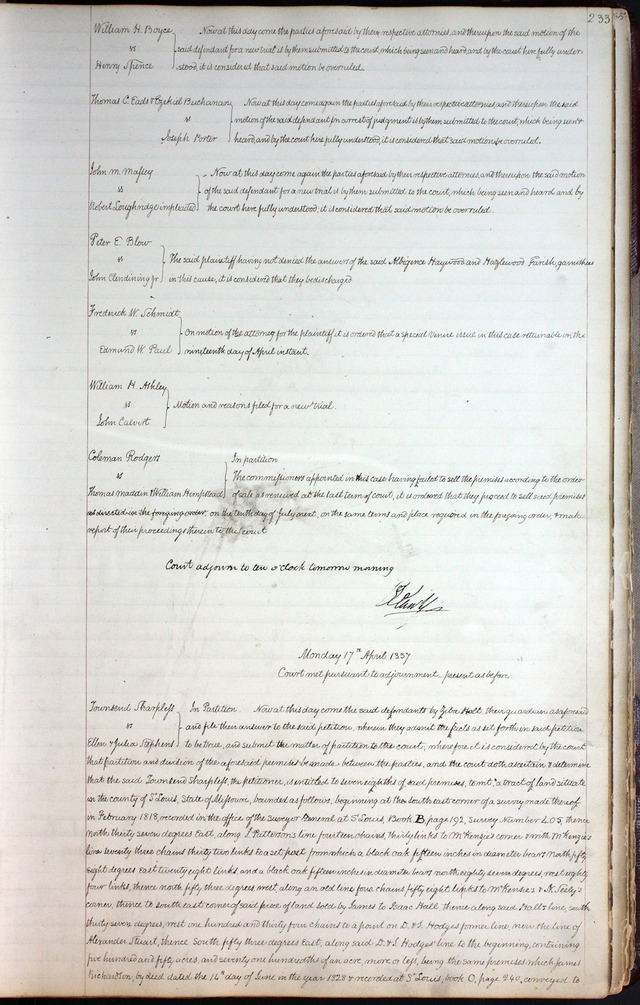 233
William H. Boyce
vs
Henry Spence
Now at this day come the parties aforesaid by their respective attornies, and thereupon the said motion of the
said defendant for a new trial is by them submitted to the court, which being seen and heard and by the court here fully under
stood, it is considered that said motion be overruled.
Thomas C. Eads & Ezekiel Buchanan
vs
Joseph Porter
Now at this day come again the parties aforesaid by their respective attornies, and thereupon the said
motion of the said defendant for arrest of judgment is by them submitted to the court, which being seen &
heard, and by the court here fully understood, it is considered that said motion be overruled.
John M. Massey
vs
Robert Loughridge impleaded
Now at this day come again the parties aforesaid by their respective attornies, and thereupon the said motion
of the said defendant for a new trial is by them submitted to the court, which being seen and heard and by
the court here fully understood, it is considered that said motion be overruled.
Peter E. Blow
vs
John Clendining jr
The said plaintiff having not denied the answers of the said Haywood and Hazlewood Farish, garnishees
in this cause, it is considered that they be discharged
Frederick W. Schmidt
vs
Edmund W. Paul
On motion of the attorney for the plaintiff it is ordered that a special venire issue in this case returnable on the
nineteenth day of April instant.
William H. Ashley
vs
John Calvert
Motion and reasons filed for a new trial.
Coleman Rodgers
vs
Thomas Maddin & William Hempstead
In partition
The commissioners appointed in this case having failed to sell the premises according to the order
of sale as renewed at the last term of court, it is ordered that they proceed to sell said premises
as directed in the foregoing order, on the tenth day of July next, on the same terms and place required in the foregoing order, & make
report of their proceedings therein to the court
Court adjourn to ten o'clock tomorrow morning
Monday 17th April 1837
Court met pursuant to adjournment present as before
Townsend Sharpless
vs
Ellen & Julia Stephens
In Partition Now at this day come the said defendants by Hall, their guardian as aforesaid
and file their answer to the said petition, wherein they admit the facts as set forth in said petition
to be true, and submit the matter of partition to the court; wherefore it is considered by the court
that partition and division of the aforesaid premises be made between the parties, and the court doth ascertain & determine
that the said Townsend Sharpless, the petitioner, is entitled to seven eighths of said premises, to wit, "a tract of land situate
in the county of St Louis, State of Missouri, bounded as follows, beginning at the south east corner of a survey made thereof
in February 1818, recorded in the office of the surveyor General at St Louis, Book B, page 192, Survey Number 405, thence
north thirty seven degrees East, along J. Patterson's line fourteen chains, thirty links to McKenzie's corner & with McKenzie's
line seventy three chains thirty two links to a set post from which a black oak fifteen inches in diameter bears north fifty
eight degrees east twenty eight links, and a black oak fifteen inches in diameter bears north eighty seven degrees, west eighty
four links, thence north fifty three degrees west along an old line four chains fifty eight links to McKensie's & Seely's
corner, thence to south east corner of said piece of land sold by James to Isaac Hall, thence along said Hall's line, south
thirty seven degrees, west one hundred and thirty four chains to a point on D. & J. Hodges former line, now the line of
Alexander Stuart, thence South fifty three degrees East, along said D. & J. Hodges' line to the beginning, containing
five hundred and fifty acres, and seventy one hundredths of an acre, more or less, being the same premises which James
Richardson, by deed dated the 14th day of June in the year 1828 & recorded at St Louis, book O, page 240, conveyed to